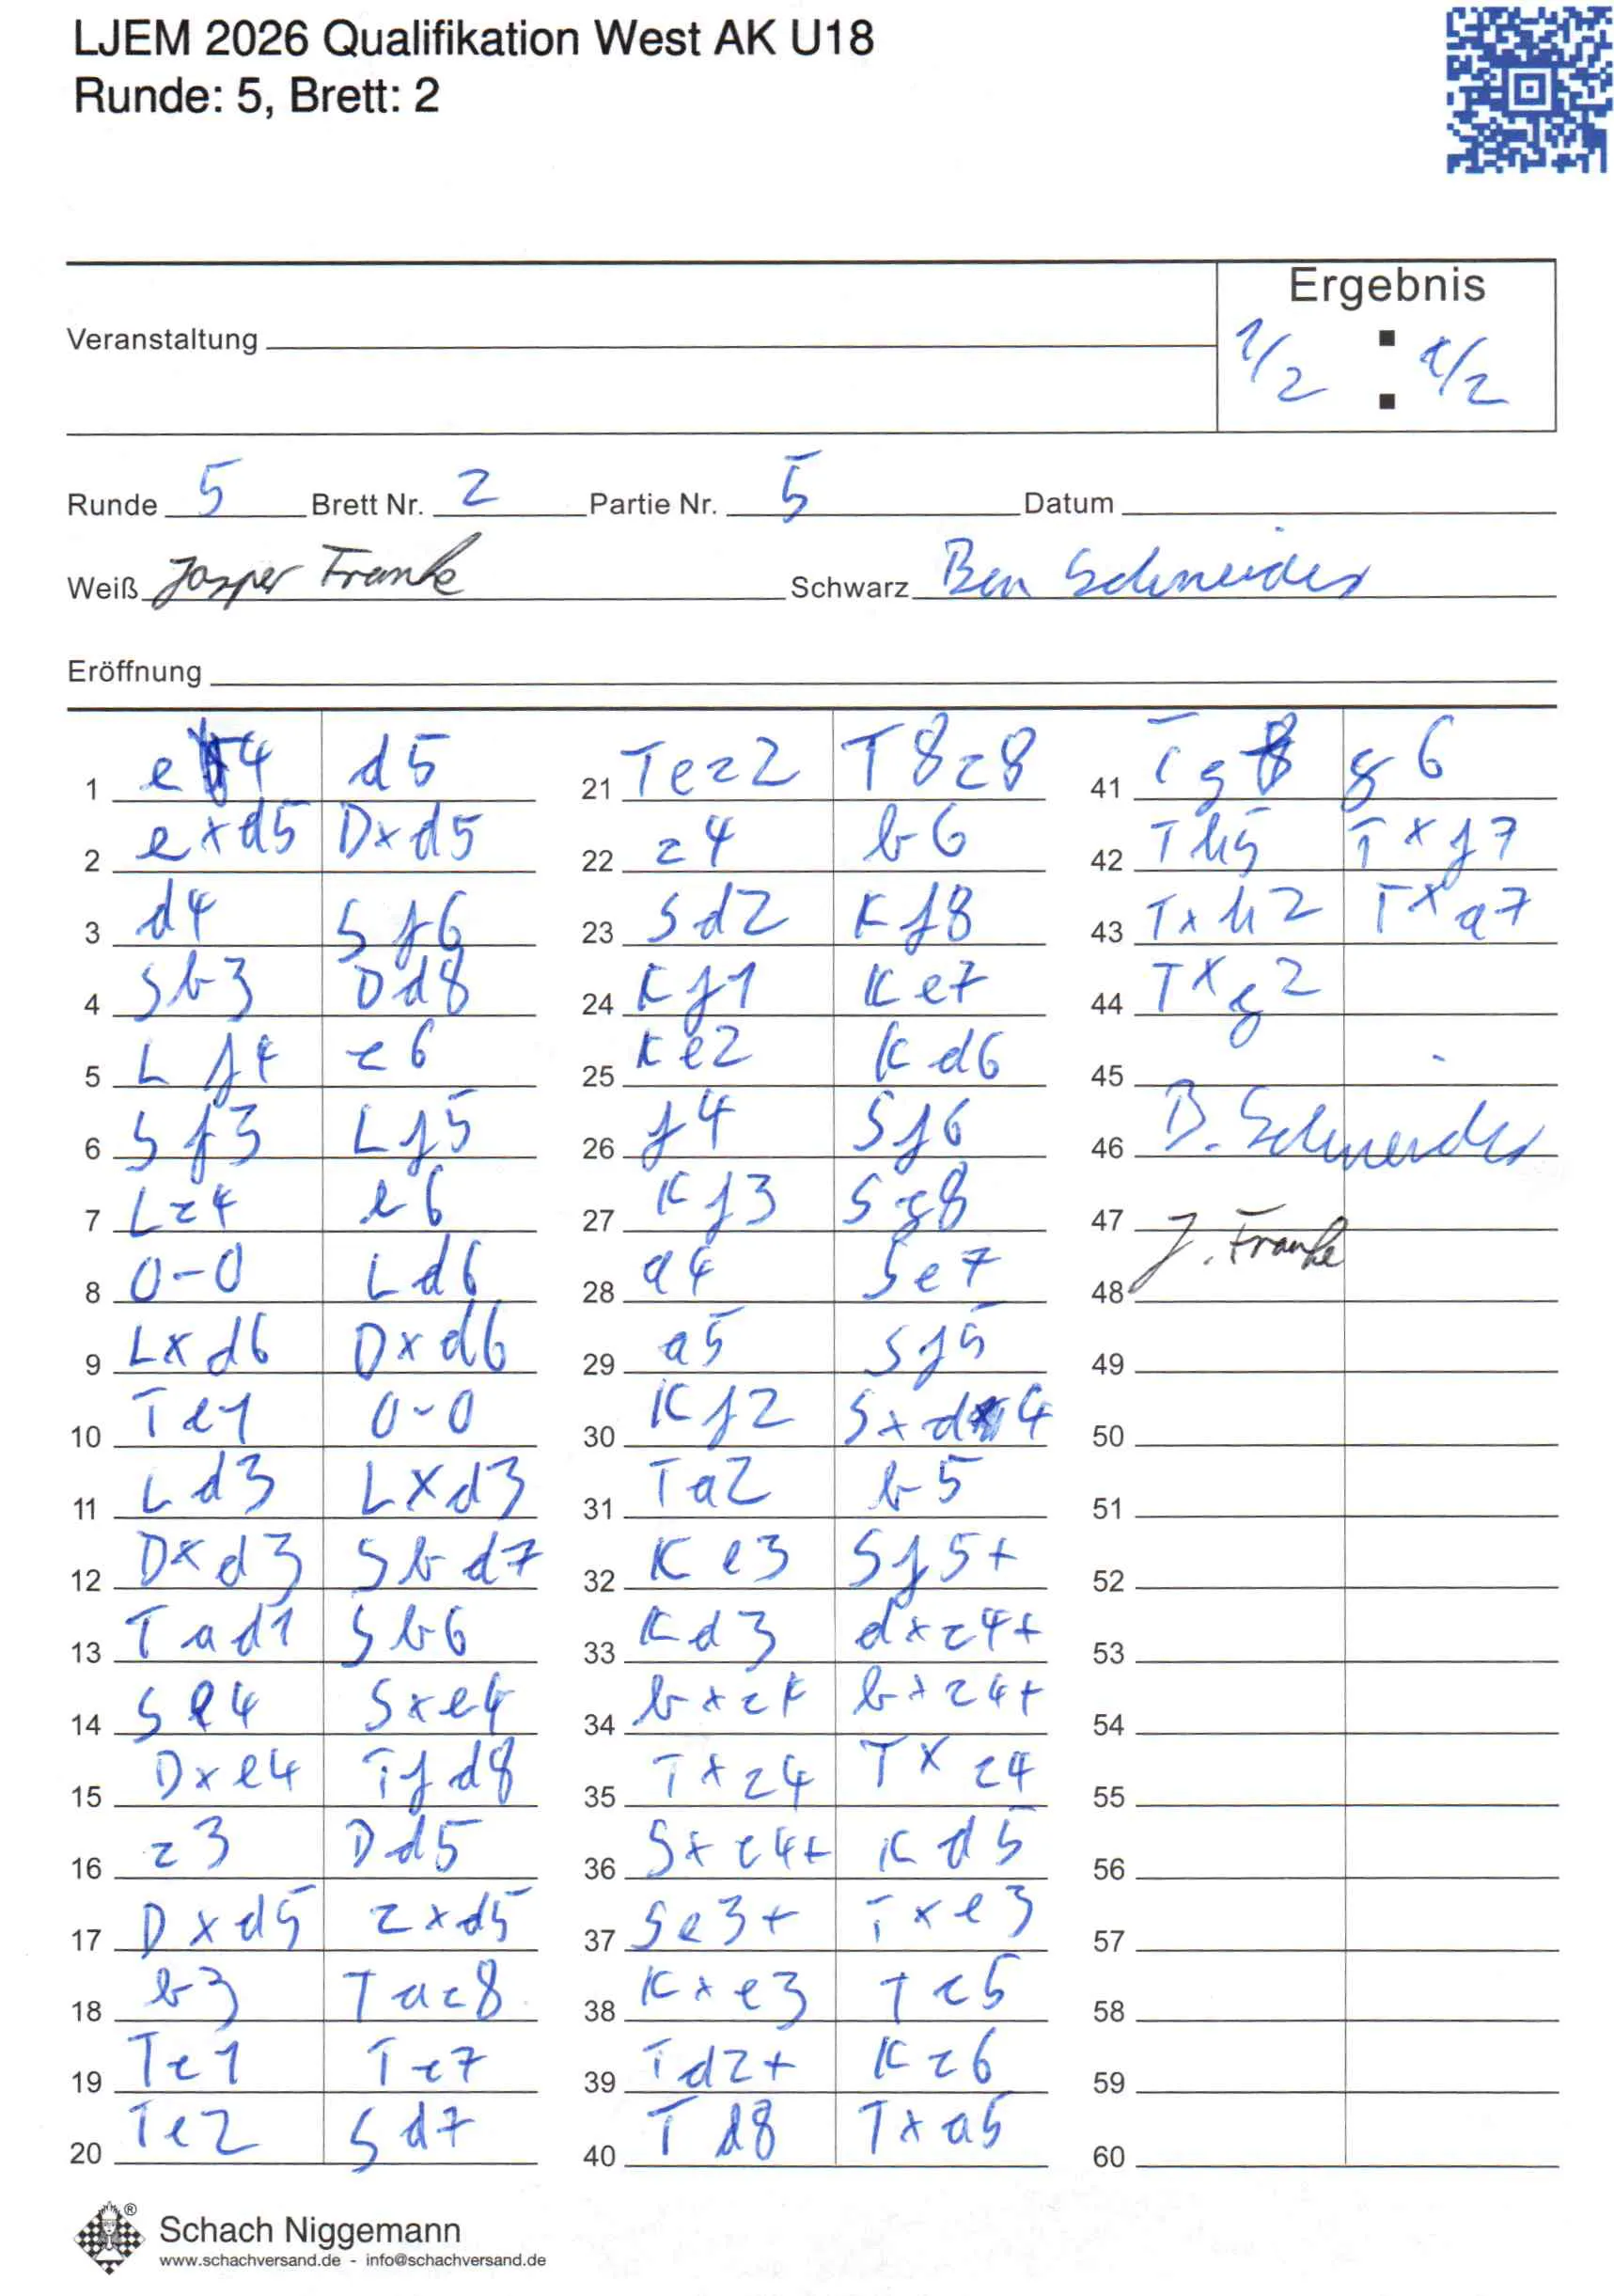 LJEM 2026 Qualifikation West AK U18
Runde: 5, Brett: 2
Ergebnis
Veranstaltung
1/2 : 1/2
Runde 5 Brett Nr. 2 Partie Nr. 5 Datum
Weiß Jasper Franke Schwarz Ben Schneider
Eröffnung
1 e4 d5
2 exd5 Dxd5
3 d4 Sf6
4 Sb3 Dd8
5 Lf4 c6
6 Sf3 Lf5
7 Lc4 e6
8 0-0 Ld6
9 Lxd6 Dxd6
10 Te1 0-0
11 Ld3 Lxd3
12 Dxd3 Sbd7
13 Tad1 Sb6
14 Se4 Sxe4
15 Dxe4 Tfd8
16 c3 Dd5
17 Dxd5 cxd5
18 b3 Tac8
19 Tc1 Tc7
20 Te2 Sd7
21 Tec2 T8c8
22 c4 b6
23 Sd2 Kf8
24 Kf1 Ke7
25 Ke2 Kd6
26 f4 Sf6
27 Kf3 Sg8
28 a4 Se7
29 a5 Sf5
30 Kf2 Sxd4
31 Ta2 b5
32 Ke3 Sf5+
33 Kd3 dxc4+
34 bxc4 bxc4+
35 Txc4 Txc4
36 Sxc4+ Kd5
37 Se3+ Txe3
38 Kxe3 Tc5
39 Td2+ Kc6
40 Td8 Txa5
41 Tg8 g6
42 Th5 Txf7
43 Txh2 Txa7
44 Txg2
45
46 B. Schneider
47 J. Franke
48
49
50
51
52
53
54
55
56
57
58
59
60
Schach Niggemann
www.schachversand.de - info@schachversand.de